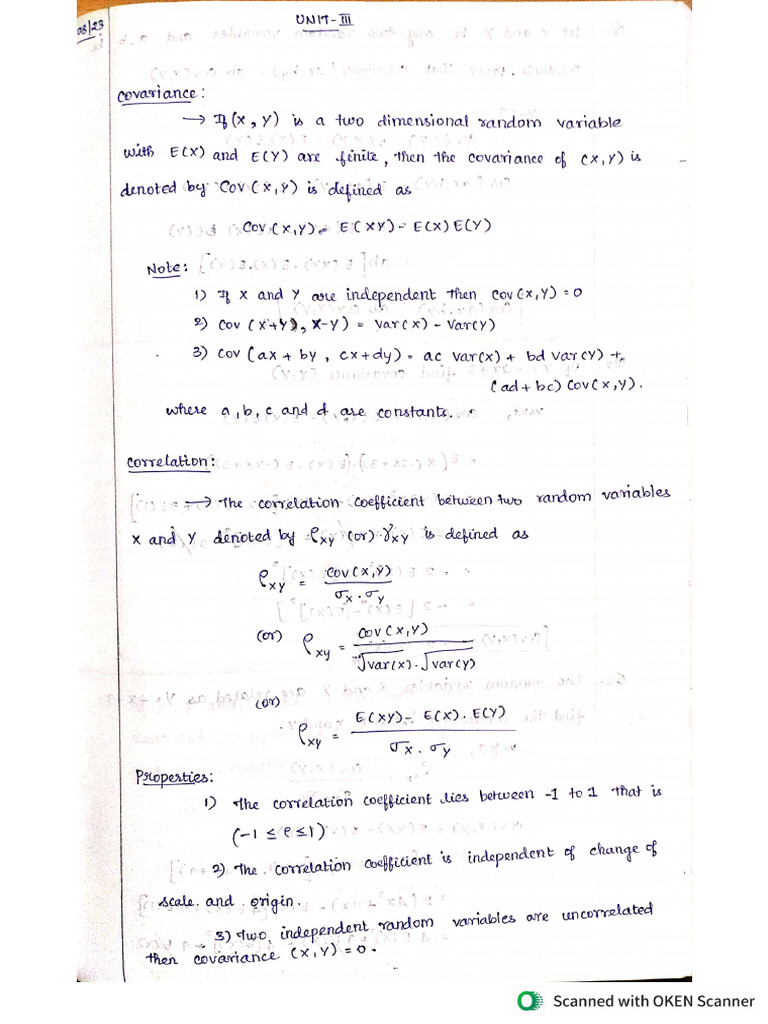 08/23
UNIT-III
Covariance:
→ If (X, Y) is a two dimensional random variable
with E(X) and E(Y) are finite, then the covariance of (X,Y) is
denoted by Cov(X,Y) is defined as
Cov(X,Y) = E(XY) - E(X)E(Y)
Note:
1) If X and Y are independent then Cov(X,Y) = 0
2) Cov (X+Y), X-Y) = Var(X) - Var(Y)
3) Cov(ax + by, cx+dy) = ac var(x) + bd var(Y) +
(ad + bc) Cov(X,Y).
where a, b, c and d are constants.
Correlation:
→ The correlation coefficient between two random variables
X and Y denoted by ρxy (or) γxy is defined as
ρxy = Cov(X,Y) / σx . σy
(or) ρxy = Cov(X,Y) / √var(x) . √var(y)
(or)
ρxy = E(XY) - E(X). E(Y) / σx . σy
Properties:
1) The correlation coefficient lies between -1 to 1 that is
(-1 ≤ ρ ≤ 1)
2) The correlation coefficient is independent of change of
scale and origin.
3) Two independent random variables are uncorrelated
then covariance (X,Y) = 0.
Scanned with OKEN Scanner